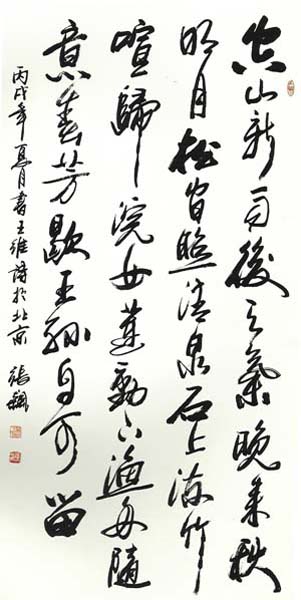 空山新雨後天氣晚來秋
明月松間照清泉石上流竹
喧歸浣女蓮動下漁舟隨
意春芳歇王孫自可留
丙戌年夏月書王維詩於北京 張